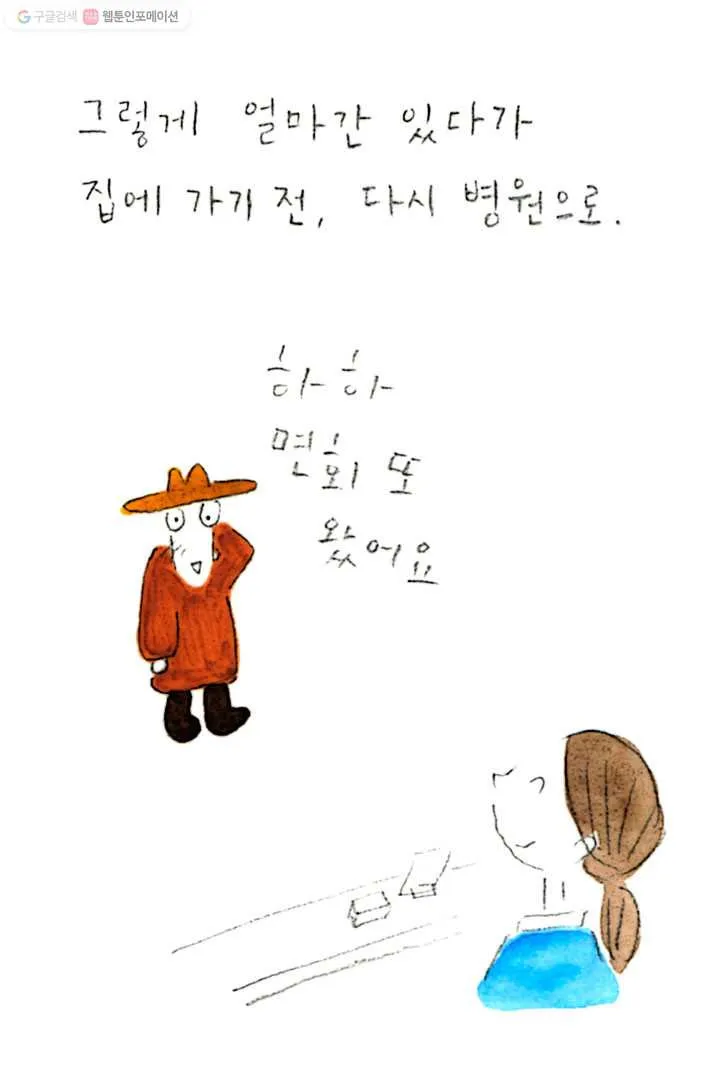 구글검색 웹툰인포메이션
그렇게 얼마간 있다가
집에 가기 전, 다시 병원으로.
하하
면회 또
왔어요